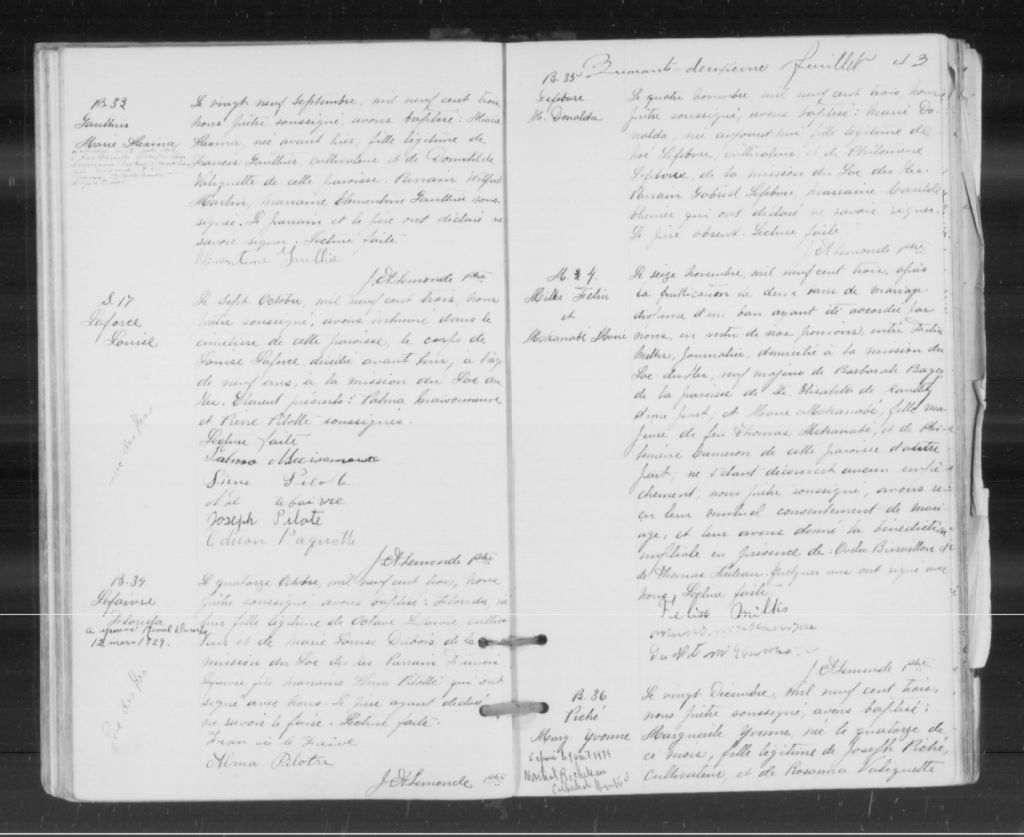 B. 33
Gauthier
Marie
Le vingt neuf Septembre, mil neuf cent trois,
nous prêtre soussigné, avons baptisé: Marie
née avant hier, fille légitime de
Francis Gauthier, cultivateur et de Domitilde
Valiquette de cette paroisse. Parrain Wilfrid
Martin, marraine Clémentine Gauthier sous-
signée. Le parrain et le père ont déclaré ne
savoir signer. Lecture faite
J. A. Lemonde ptre
S. 17
Laforce
Louise
Le sept Octobre, mil neuf cent trois, nous
prêtre soussigné, avons inhumé dans le
cimetière de cette paroisse, le corps de
Louise Laforce, décédée avant hier, a l'âge
de neuf ans, a la mission du Lac des
Iles. Etaient présents: Palma Maisonneuve
et Pierre Pilotte soussignés.
Lecture faite
Palma Maisonneuve
Pierre Pilotte
Joseph Pilote
Edison Paquette
J. A. Lemonde ptre
Lac des Iles
B. 34
Lefaivre
Florida
a épousé Raoul
12 mars 1929.
Le quatorze Octobre, mil neuf cent trois, nous
prêtre soussigné, avons baptisé: Florida née
hier fille légitime de Octave Lefaivre, cultiva-
teur et de Marie Louise Dubois de la
mission du Lac des Iles Parrain Francis
Lefaivre fils marraine Alma Pilotte qui ont
signé avec nous. Le père ayant déclaré
ne savoir le faire. Lecture faite.
Alma Pilotte
J. A. Lemonde ptre
Lac des Iles
Quarante-deuxième feuillet 43
B. 35
Lefebvre
M. Donalda
Le quatre Novembre, mil neuf cent trois, nous
prêtre soussigné, avons baptisé: Marie Do-
nalda, née aujourd'hui, fille légitime de
Noé Lefebvre, cultivateur et de Philomène
Lefebvre, de la mission du Lac des Iles.
Parrain Gabriel Lefebvre, marraine
qui ont déclaré ne savoir signer.
Le père absent. Lecture faite.
J. A. Lemonde ptre
M. 4.
Milks Félix
et
McKanabé Marie
Le seize Novembre, mil neuf cent trois, après
la publication de deux bans de mariage
dispense d'un ban ayant été accordée par
nous, en vertu de nos pouvoirs, entre Félix
Milks, Journalier, domicilié à la mission du
Lac des Iles, veuf majeur de Barbarah
de la paroisse de Ste. Elisabeth de
d'une part; et Marie McKanabé, fille ma-
jeure de feu Thomas McKanabé, et de Phi-
lomène Cameron de cette paroisse d'autre
part; ne s'étant découvert aucun empê-
chement, nous prêtre soussigné, avons re-
çu leur mutuel consentement de mari-
age, et leur avons donné la bénédiction
nuptiale en présence de Ovila et
de Thomas. Quelques uns ont signé avec
nous. Lecture faite.
J. A. Lemonde ptre
B. 36
Piché
Marg Yvonne
Le vingt Décembre, mil neuf cent trois,
nous prêtre soussigné, avons baptisé:
Marguerite Yvonne, née le quatorze de
ce mois, fille légitime de Joseph Piché,
cultivateur, et de Rosanna Valiquette